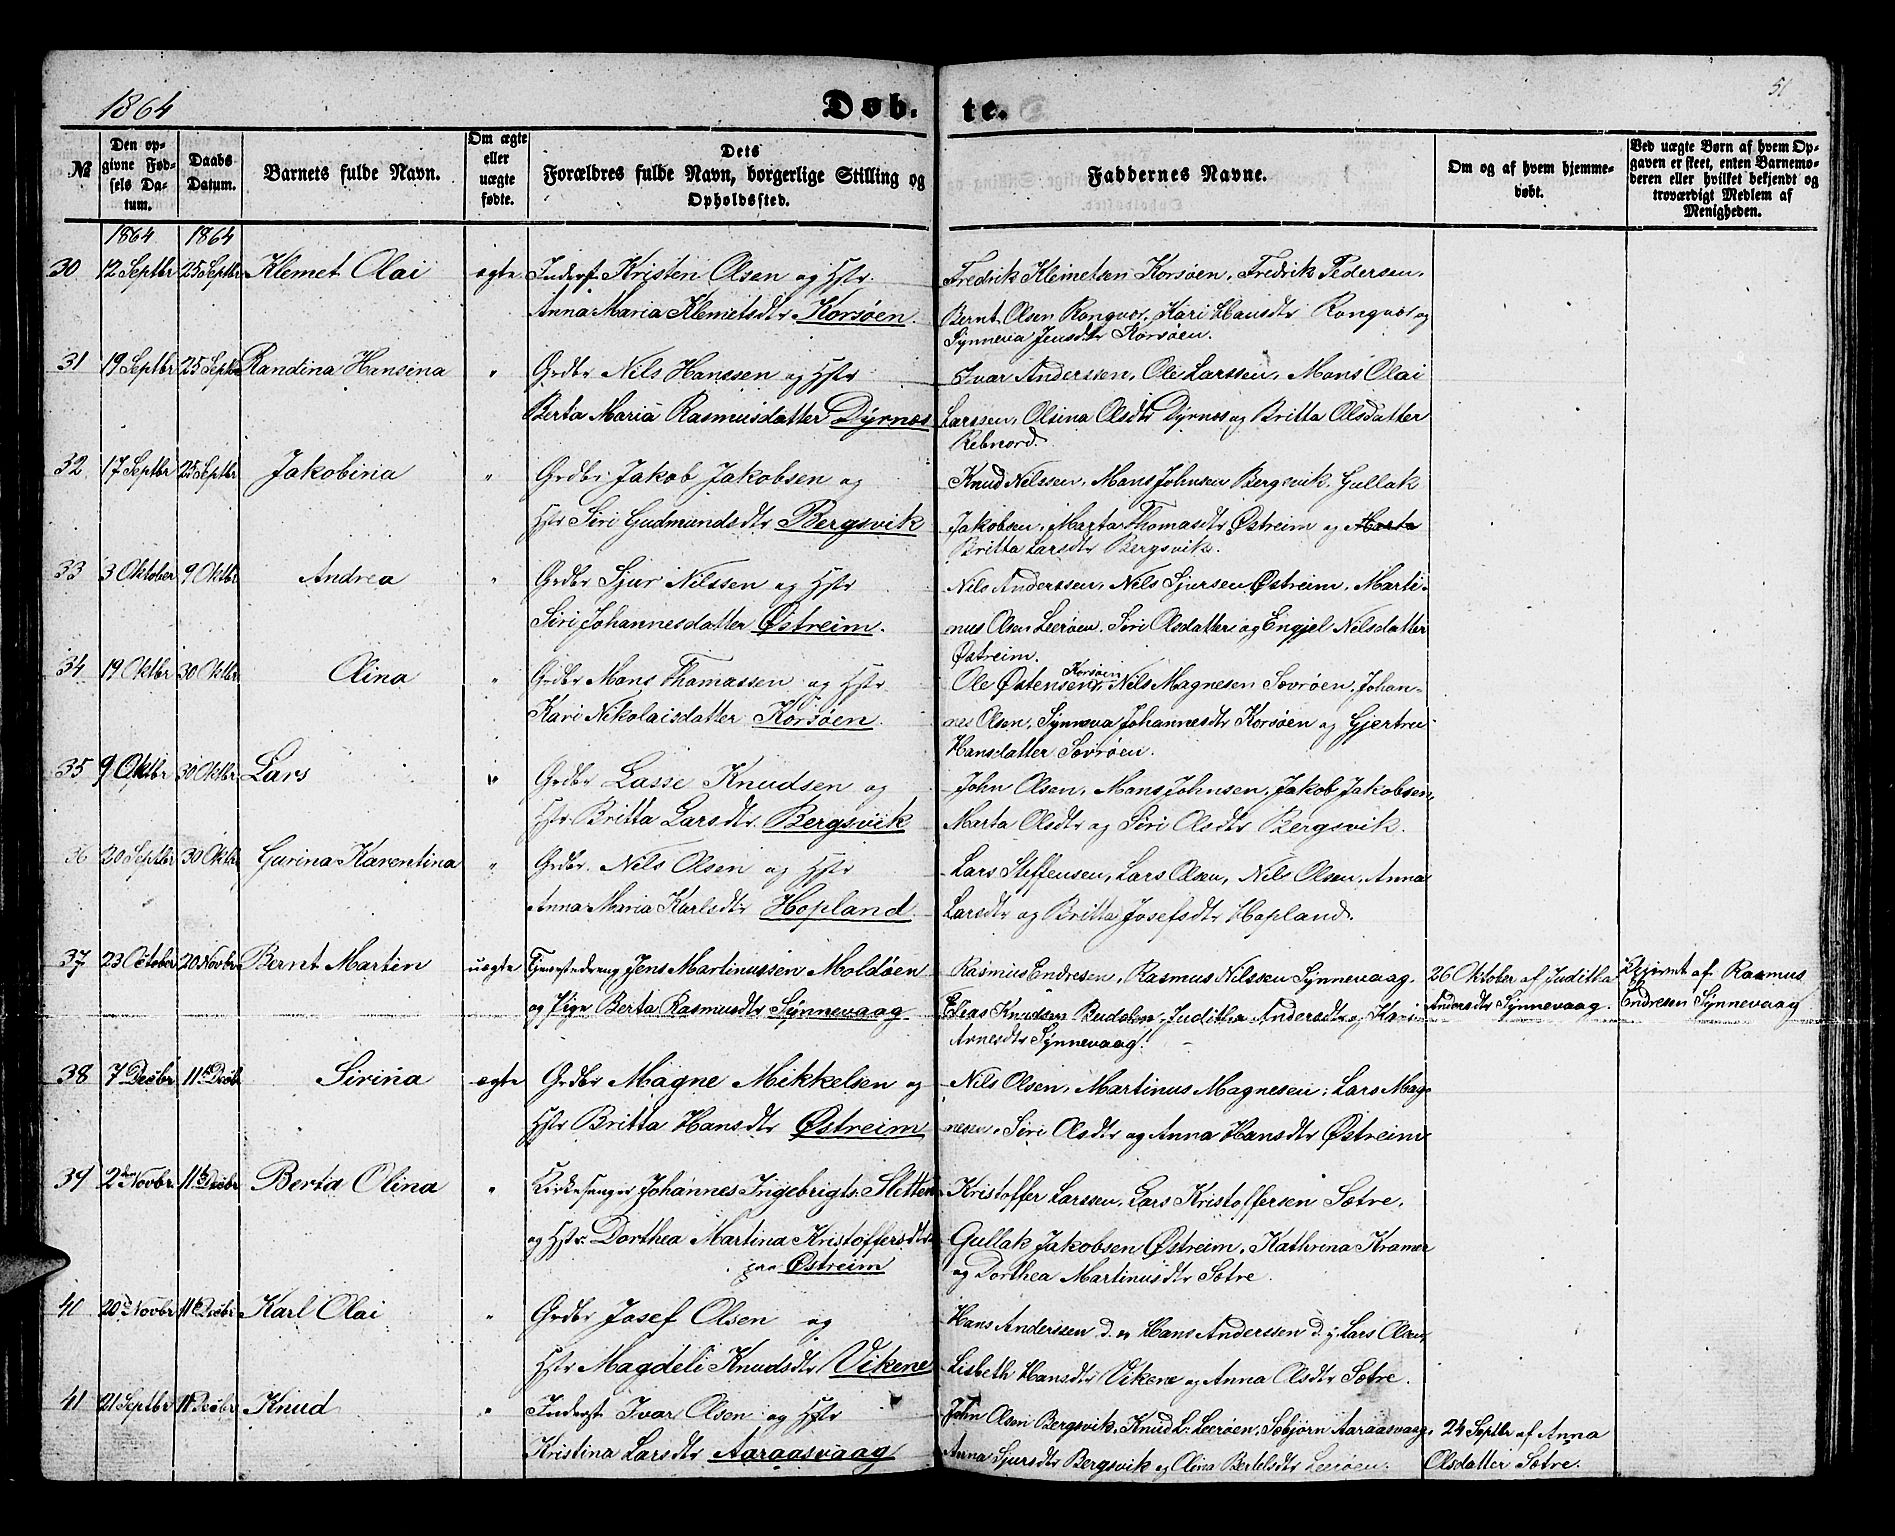 51
1864
Døb-
te.
№
Den op-
givne Fød-
sels Da-
tum.
Daabs
Datum.
Barnets fulde Navn.
Om ægte
eller
uægte
fødte.
Dets
Forældres fulde Navn, borgerlige Stilling og
Opholdssted.
Faddernes Navne.
Om og af hvem hjemme-
døbt.
Ved uægte Børn af hvem Op-
gaven er skeet, enten Barnemo-
deren eller hvilket bekjendt og
troværdigt Medlem af
Menigheden.
1864 1864
30 12 Septbr 25 Septbr Klemet Olai ægte Inderst Kristen Olsen og Hstr
Anna Maria Klemetsdtr Korsøen.
Fredrik Klemetsen Korsøen, Fredrik Pedersen,
Bernt Olsen Rongvær, Kari Hansdtr Rongvær og
Synneva Jensdtr Korsøen.
31 19 Septbr 25 Septbr Randina Hansina " Grdbr Nils Hanssen og Hstr
Berta Maria Rasmusdatter Dyrnes
Ivar Anderssen, Ole Larssen, Mons Olai
Larssen, Olsina Olsdtr Dyrnes og Britta Olsdatter
Rebnord.
32 17 Septbr 25 Septbr Jakobina " Grdbr Jakob Jakobsen og
Hstr Siri Gudmundsdtr Bergsvik
Knud Nilssen, Mans Johnsen Bergsvik, Gullak
Jakobsen, Marta Thomasdtr Østreim og Marta
Britta Larsdtr Bergsvik.
33 3 Oktober 9 Oktbr Andrea " Grdbr Sjur Nilssen og Hstr
Siri Johannesdatter Østreim.
Nils Anderssen, Nils Sjursen Østreim, Marti-
nus Olsen Leerøen, Siri Olsdatter og Engjel Nilsdatter
Østreim.
34 19 Oktbr 30 Oktbr Olina " Grdbr Mons Thomassen og Hstr
Kari Nikolaisdatter Korsøen.
Korsøen
Ole Østensen, Nils Magnesen Sovrøen, Johan-
nes Olsen, Synneva Johannesdtr Korsøen og Gjertru
Hansdatter Sovrøen.
35 9 Oktbr 30 Oktbr Lars " Grdbr Lasse Knudsen og
Hstr Britta Larsdtr Bergsvik
John Olsen, Mans Johnsen, Jakob Jakobsen,
Marta Olsdtr og Siri Olsdtr Bergsvik.
36 20 Septbr 30 Oktbr Gurina Karentina " Grdbr. Nils Olsen og Hstr
Anna Maria Karlsdtr Hopland.
Lars Steffensen, Lars Olsen, Nils Olsen, Anna
Larsdtr og Britta Josefsdtr Hopland.
37 23 October 20 Novbr Bernt Martin uægte Tjenestedreng Jens Martinussen Moldøen
og Pige Berta Rasmusdtr Synnevaag
Rasmus Endresen, Rasmus Nilssen Synnevaag.
Elias Knudsen Budalen, Juditha Andersdtr og Kari
Arnesdtr Synnevaag.
26 Oktober af Juditha
Andersdtr Synnevaag.
Bejvent af Rasmus
Endresen Synnevaag
38 7 Decbr 11 Decb Sirina ægte Grdbr Magne Mikkelsen og
Hstr Britta Hansdtr Østreim
Nils Olsen, Martinus Magnesen, Lars Mag-
nesen, Siri Olsdtr og Anna Hansdtr Østreim
39 2den Novbr. 11 Decbr Berta Olina " Kirkesanger Johannes Ingebrigts. Sletten
og Hstr. Dorthea Martina Kristoffersdtr
paa Østreim
Kristoffer Larssen, Lars Kristoffersen Sætre,
Gullak Jakobsen Østreim, Kathrina Kramer
og Dorthea Martinusdtr Sætre.
40 20 Novbr 11 Decbr Karl Olai " Grdbr Josef Olsen og
Hstr Magdeli Knudsdtr Vikene
Hans Anderssen d. æ Hans Anderssen d. y. Lars Olsen,
Lisbeth Hansdtr Vikene og Anna Olsdtr Sætre.
41 21 Septbr 11 Decbr Knud " Inderst Ivar Olsen og Hstr
Kristina Larsdtr Aaraasvaag
John Olsen Bergsvik, Knud L. Leerøen, Sobjørn Aaraasvaag,
Anna Sjursdtr Bergsvik og Olina Bertelsdtr Leerøen.
24 Septbr af Anna
Olsdatter Sætre.